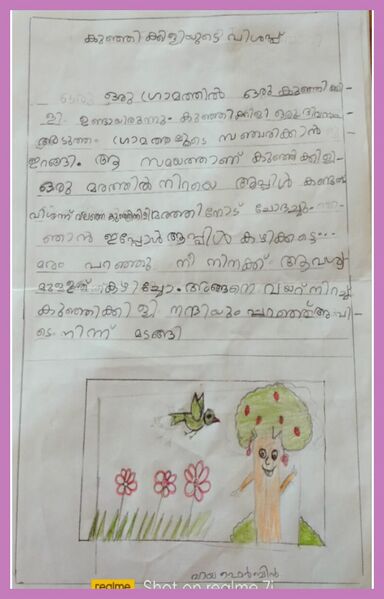 കുഞ്ഞിക്കിളിയുടെ വിശപ്പ്
ഒരു ഗ്രാമത്തിൽ ഒരു കുഞ്ഞിക്കി-
ളി ഉണ്ടായിരുന്നു. കുഞ്ഞിക്കിളി ഒരു ദിവസം
അടുത്ത ഗ്രാമത്തിലൂടെ സഞ്ചരിക്കാൻ
ഇറങ്ങി. ആ സമയത്താണ് കുഞ്ഞിക്കിളി-
ഒരു മരത്തിൽ നിറയെ ആപ്പിൾ കണ്ടത്
വിശന്ന് വലഞ്ഞ കുഞ്ഞിക്കിളി മരത്തിനോട് ചോദിച്ചു.
ഞാൻ ഇപ്പോൾ ആപ്പിൾ കഴിക്കട്ടെ...
മരം പറഞ്ഞു നീ നിനക്ക് ആവശ്യ-
മുള്ളത് കഴിച്ചോ. അങ്ങനെ വയറ് നിറച്ച്
കുഞ്ഞിക്കിളി നന്ദിയും പറഞ്ഞ് അവി-
ടെ നിന്ന് മടങ്ങി
realme Shot on realme 7i